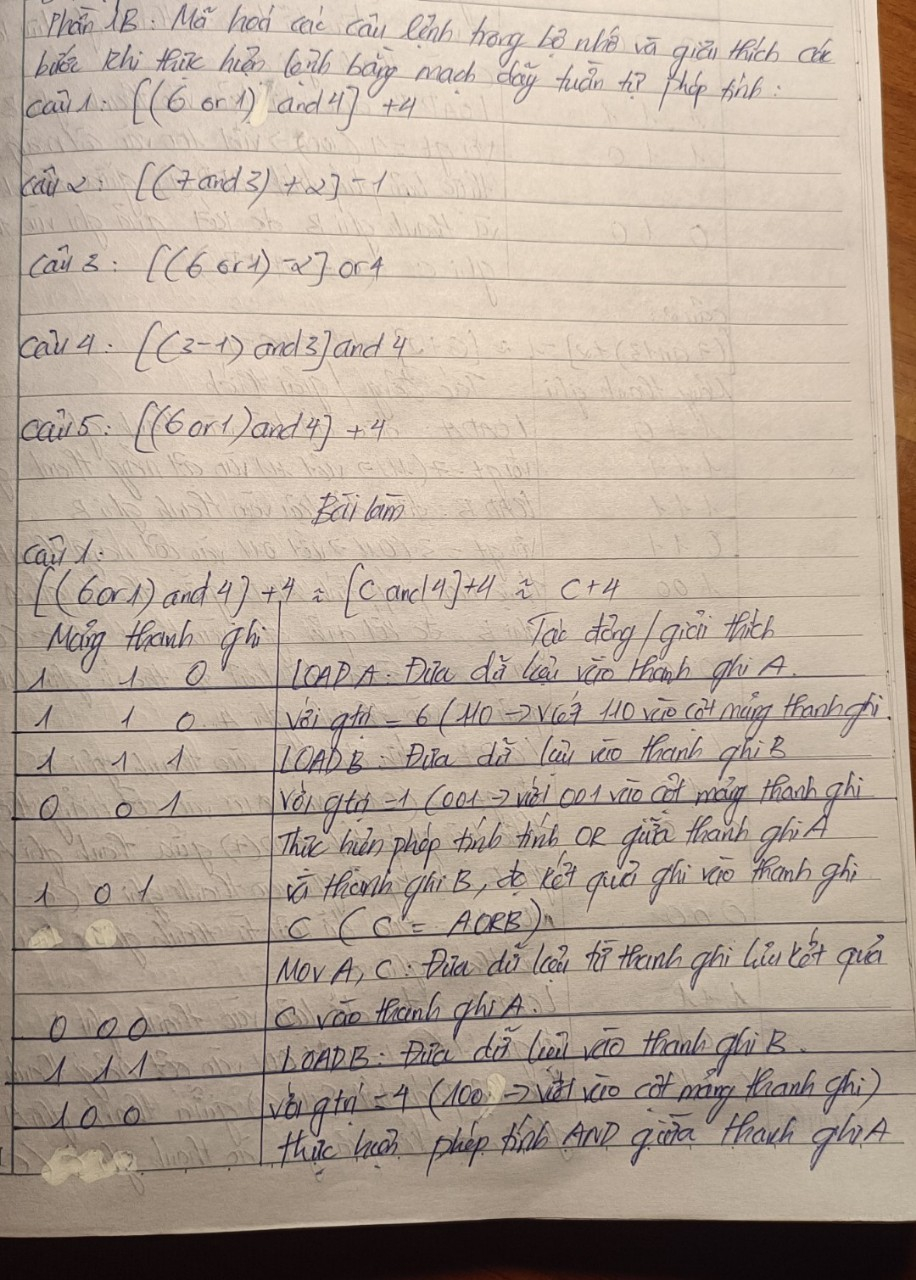 Phần 1B: Mã hoá các câu lệnh trong bộ nhớ và giải thích các
bước khi thực hiện lệnh bằng mạch dãy tuần tự phép tính:
câu 1: [(6 or 1) and 4] + 4
câu 2: [(7 and 3) + 2] - 1
câu 3: [(6 or 1) - 2] or 4
câu 4: [(3-1) and 3] and 4
câu 5: [(6 or 1) and 4] + 4
Bài làm
câu 1:
[(6 or 1) and 4] + 4 ≈ [C and 4] + 4 ≈ C + 4
Mảng thanh ghi Tác động / giải thích
1 1 0 LOAD A: Đưa dữ liệu vào thanh ghi A.
1 1 0 với gtrị = 6 (110 -> viết 110 vào cột mảng thanh ghi.
1 1 1 LOAD B: Đưa dữ liệu vào thanh ghi B
0 0 1 với gtrị = 1 (001 -> viết 001 vào cột mảng thanh ghi
Thực hiện phép tính tính OR giữa thanh ghi A
1 0 1 và thanh ghi B, kết quả ghi vào thanh ghi
C ( C = A OR B )
MOV A, C: Đưa dữ liệu từ thanh ghi lưu kết quả
0 0 0 C vào thanh ghi A.
1 1 1 LOAD B: Đưa dữ liệu vào thanh ghi B.
1 0 0 với gtrị = 4 (100 -> viết vào cột mảng thanh ghi)
thực hiện phép tính AND giữa thanh ghi A